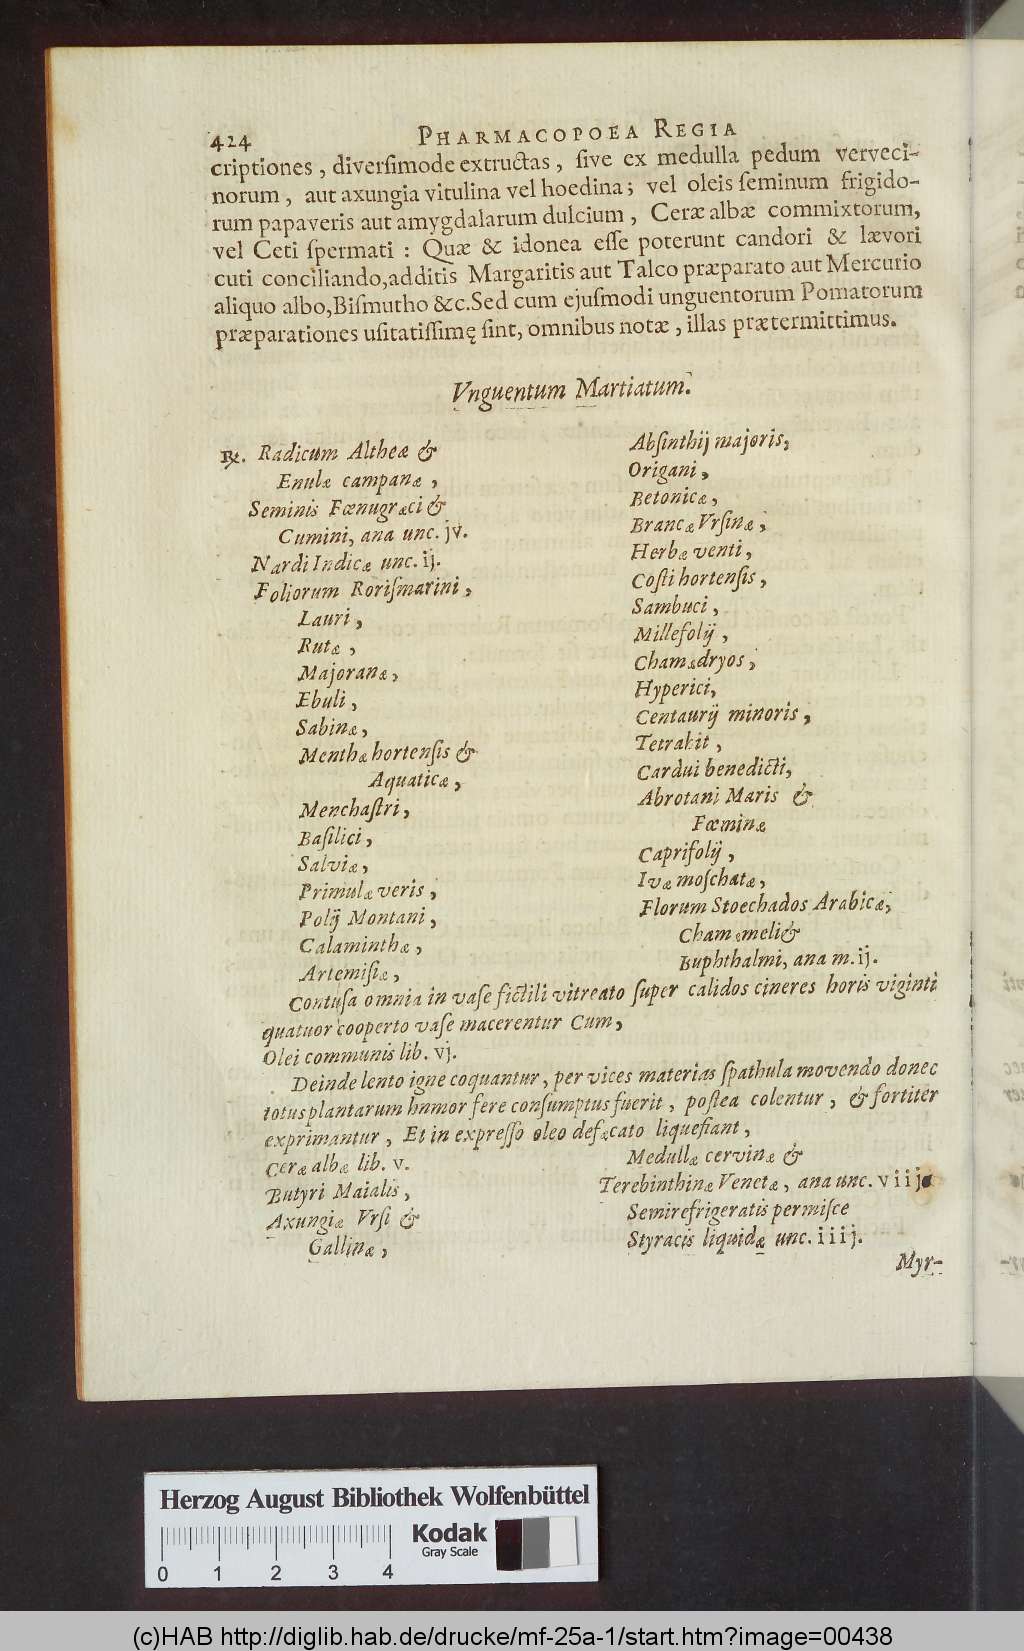 424 PHARMACOPOEA REGIA
criptiones, diversimode extructas, sive ex medulla pedum verveci-
norum, aut axungia vitulina vel hoedina; vel oleis seminum frigido-
rum papaveris aut amygdalarum dulcium, Ceræ albæ commixtorum,
vel Ceti spermati: Quæ & idonea esse poterunt candori & lævori
cuti conciliando, additis Margaritis aut Talco præparato aut Mercurio
aliquo albo, Bismutho &c. Sed cum ejusmodi unguentorum Pomatorum
præparationes usitatissimę sint, omnibus notæ, illas prætermittimus.
Vnguentum Martiatum.
℞. Radicum Altheæ &
Enulæ campanæ,
Seminis Fœnugræci &
Cumini, ana unc. jv.
Nardi Indicæ unc. ij.
Foliorum Rorismarini,
Lauri,
Rutæ,
Majoranæ,
Ebuli,
Sabinæ,
Menthæ hortensis &
Aquaticæ,
Menchastri,
Basilici,
Salviæ,
Primulæ veris,
Polij Montani,
Calaminthæ,
Artemisiæ,
Absinthij majoris,
Origani,
Betonicæ,
Brancæ Vrsinæ,
Herbæ venti,
Costi hortensis,
Sambuci,
Millefolij,
Chamædryos,
Hyperici,
Centaurij minoris,
Tetrahit,
Cardui benedicti,
Abrotani Maris &
Fœminæ
Caprifolij,
Ivæ moschatæ,
Florum Stoechados Arabicæ,
Chamæmeli &
Buphthalmi, ana m. ij.
Contusa omnia in vase fictili vitreato super calidos cineres horis viginti
quatuor cooperto vase macerentur Cum,
Olei communis lib. vj.
Deinde lento igne coquantur, per vices materias spathula movendo donec
totus plantarum hnmor fere consumptus fuerit, postea colentur, & fortiter
exprimantur, Et in expresso oleo defæcato liquefiant,
Ceræ albæ lib. v.
Butyri Maialis,
Axungiæ Vrsi &
Gallinæ,
Medullæ cervinæ &
Terebinthinæ Venetæ, ana unc. viij.
Semirefrigeratis permisce
Styracis liquidæ unc. iiij.
Myr-
Herzog August Bibliothek Wolfenbüttel
Kodak
Gray Scale
0 1 2 3 4
(c)HAB http://diglib.hab.de/drucke/mf-25a-1/start.htm?image=00438